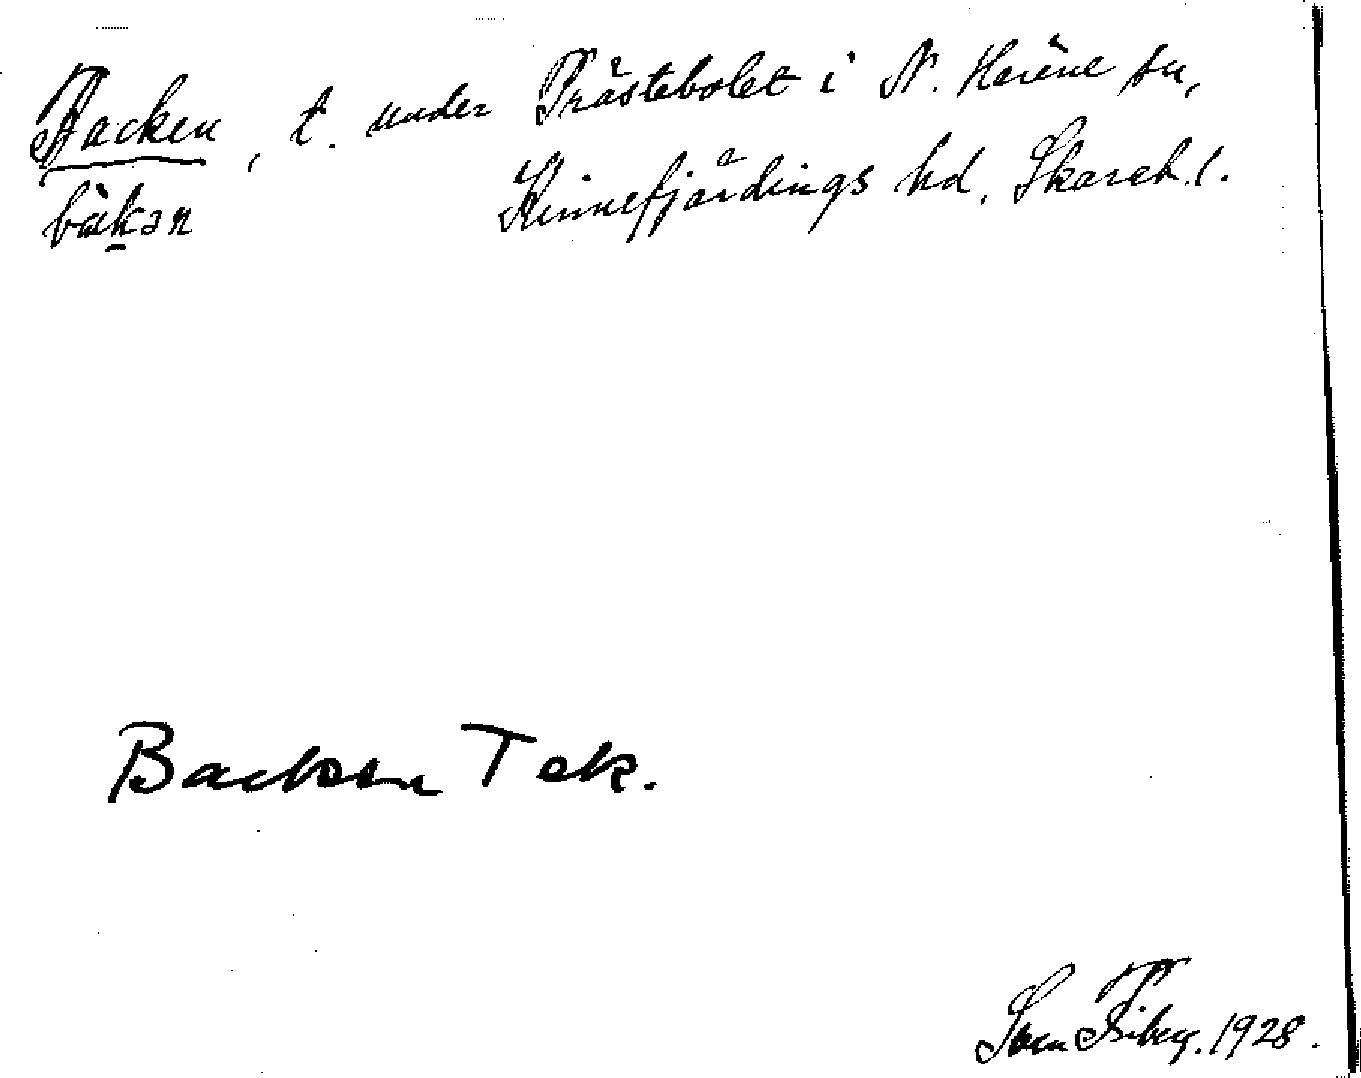 Backen, t. under Prästebolet i N. Härene sn,
bàkən Kinnefjärdings hd, Skarab. l.
Backen Tek.
Sven Fiberg. 1928.